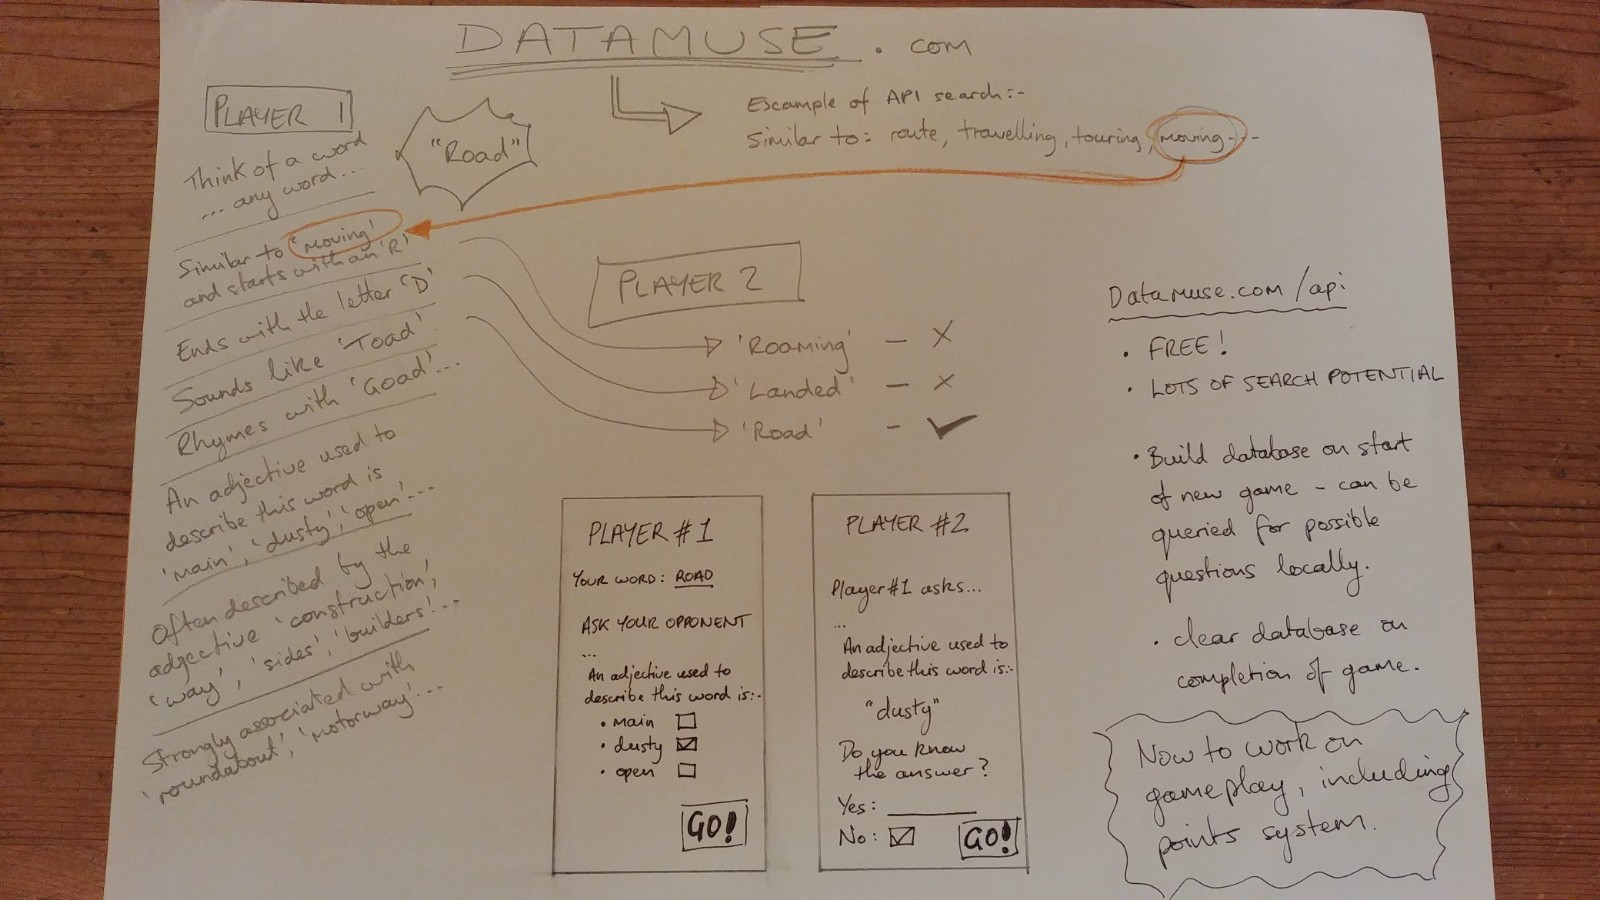 DATAMUSE . COM
PLAYER 1
Think of a word
... any word...
"Road"
Escample of API search:-
Similar to: route, travelling, touring, moving...
Similar to 'moving'
and starts with an 'R'
Ends with the letter 'D'
Sounds like 'Toad'.
Rhymes with 'Goad'...
An adjective used to
describe this word is
'main', 'dusty', 'open'...
Often described by the
adjective 'construction',
'way', 'sides', 'builders'...
Strongly associated with
'roundabout', 'motorway'...
PLAYER 2
'Roaming' - X
'Landed' - X
'Road' - ✓
PLAYER #1
YOUR WORD: ROAD
ASK YOUR OPPONENT
...
An adjective used to
describe this word is:-
• main ☐
• dusty ☑
• open ☐
GO!
PLAYER #2
Player#1 asks...
...
An adjective used to
describe this word is:-
"dusty"
Do you know
the answer?
Yes: ________
No: ☑
GO!
Datamuse.com/api
• FREE!
• LOTS OF SEARCH POTENTIAL
• Build database on start
of new game - can be
queried for possible
questions locally.
• clear database on
completion of game.
Now to work on
gameplay, including
points system.